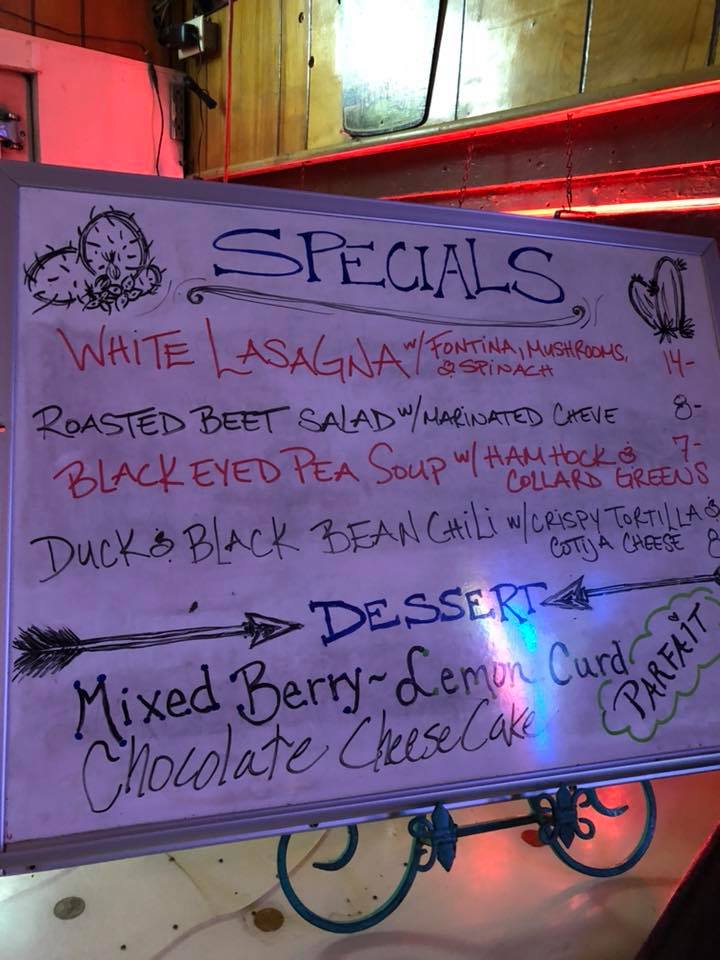 SPECIALS
WHITE LASAGNA w/ FONTINA, MUSHROOMS, & SPINACH 14-
ROASTED BEET SALAD w/ MARINATED CHEVE 8-
BLACK EYED PEA SOUP w/ HAM HOCK & COLLARD GREENS 7-
DUCK & BLACK BEAN CHILI w/ CRISPY TORTILLA & COTIJA CHEESE 8
DESSERT
Mixed Berry~Lemon Curd PARFAIT
Chocolate CheeseCake